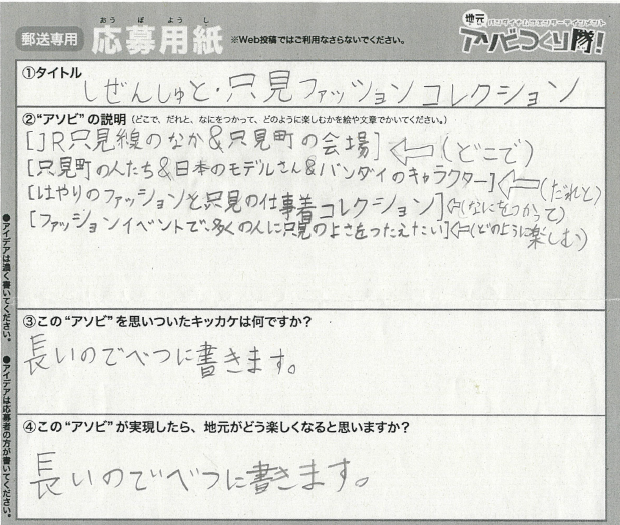 郵送専用 応募用紙 おうぼようし ※Web投稿ではご利用なさらないでください。
地元 バンダイナムコエンターテインメント
アソビつくり隊!
①タイトル
しぜんしゅと・只見ファッションコレクション
②“アソビ”の説明(どこで、だれと、なにをつかって、どのように楽しむかを絵や文章でかいてください。)
[JR只見線のなか&只見町の会場]⇦(どこで)
[只見町の人たち&日本のモデルさん&バンダイのキャラクター]⇦(だれと)
[はやりのファッションと只見の仕事着コレクション]⇦(なにをつかって)
[ファッションイベントで、多くの人に只見のよさをつたえたい]⇦(どのように楽しむ)
③この“アソビ”を思いついたキッカケは何ですか?
長いのでべつに書きます。
④この“アソビ”が実現したら、地元がどう楽しくなると思いますか?
長いのでべつに書きます。
●アイデアは濃く書いてください。
●アイデアは応募者の方が書いてください。